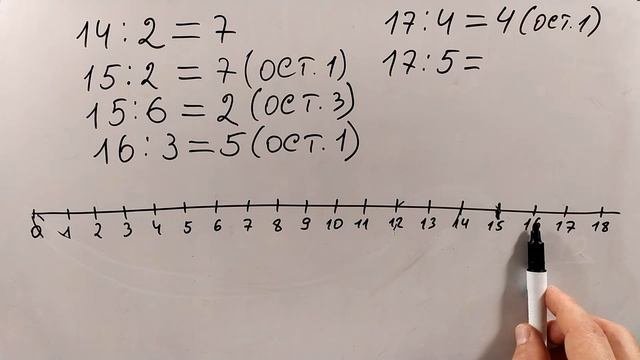 14 : 2 = 7
15 : 2 = 7 (ост. 1)
15 : 6 = 2 (ост. 3)
16 : 3 = 5 (ост. 1)
17 : 4 = 4 (ост. 1)
17 : 5 =
0 1 2 3 4 5 6 7 8 9 10 11 12 13 14 15 16 17 18